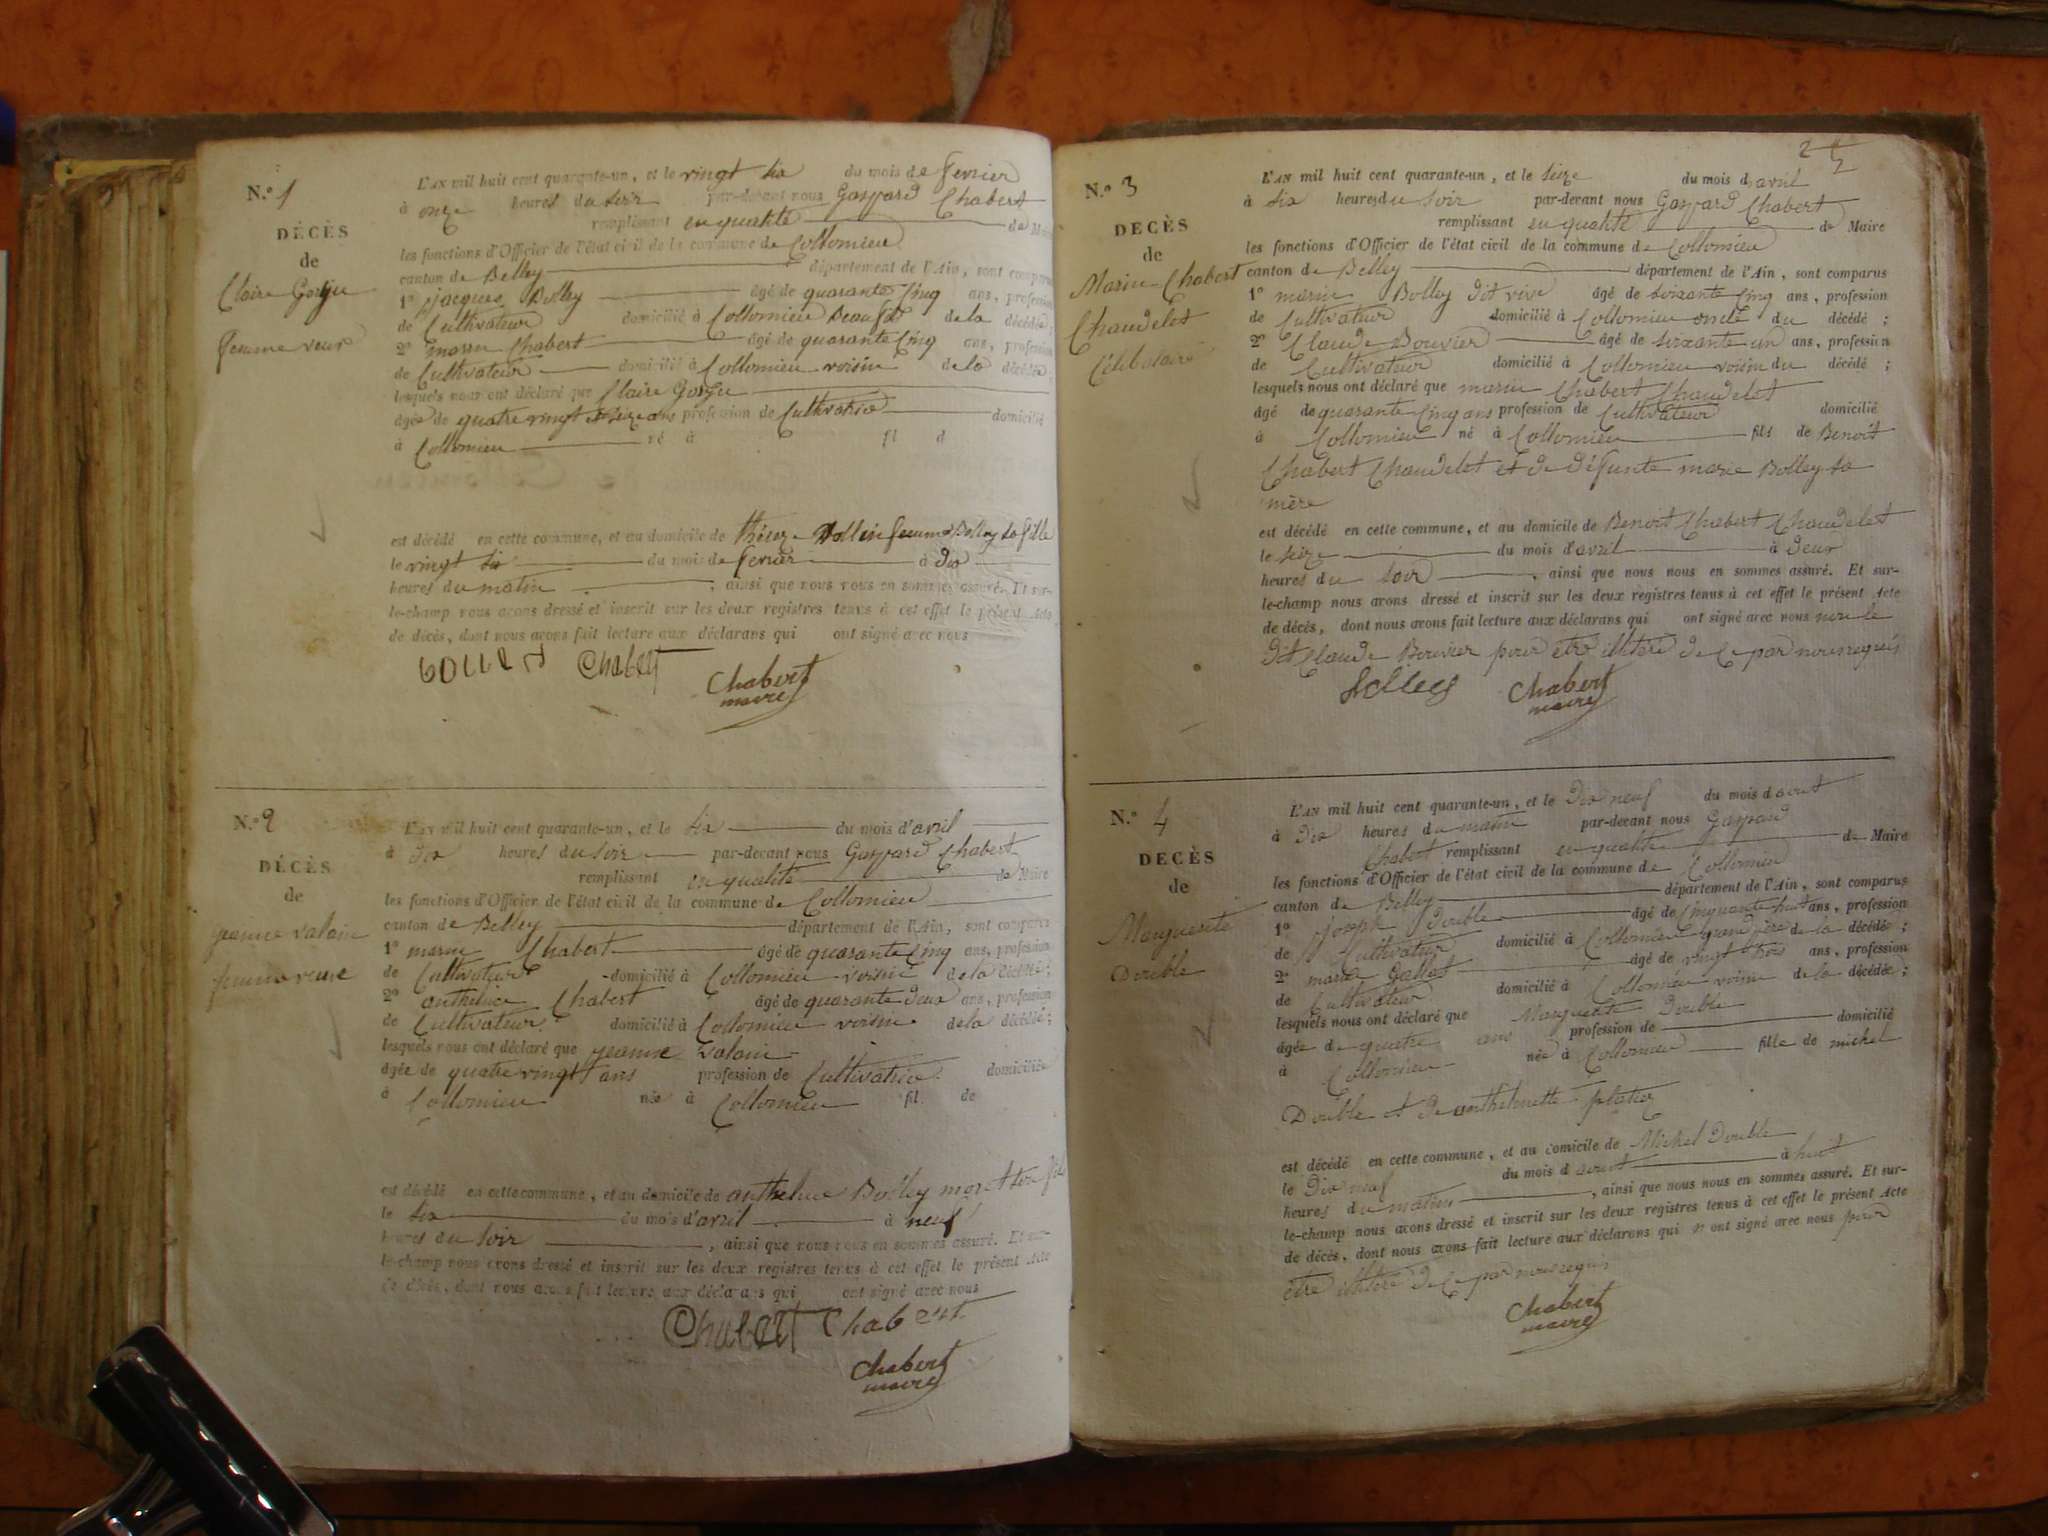 N.º 1
DÉCÈS
de
Claire Gorju
femme veuve
L'AN mil huit cent quarante-un, et le vingt six du mois de fevrier
à onze heures du soir par-devant nous Gaspard Chabert
remplissant en qualité de Maire
les fonctions d'Officier de l'état civil de la commune de Collomieu
canton de Belley département de l'Ain, sont comparus
1º jacques Bolley âgé de quarante cinq ans, profession
de Cultivateur domicilié à Collomieu Beaufils de la décédée;
2º marin Chabert âgé de quarante cinq ans, profession
de Cultivateur domicilié à Collomieu voisin de la décédée;
lesquels nous ont déclaré que Claire Gorju
âgée de quatre vingt treize ans profession de Cultivatrice domicilié
à Collomieu né à fil d
est décédé en cette commune, et au domicile de femme Bolley sa fille
le vingt six du mois de fevrier à dix
heures du matin ; ainsi que nous nous en sommes assuré. Et sur-
le-champ nous avons dressé et inscrit sur les deux registres tenus à cet effet le présent Acte
de décès, dont nous avons fait lecture aux déclarans qui ont signé avec nous
Chabert
Chabert
maire
N.º 2
DÉCÈS
de
jeanne valain
femme veuve
L'AN mil huit cent quarante-un, et le six du mois d'avril
à dix heures du soir par-devant nous Gaspard Chabert
remplissant en qualité de Maire
les fonctions d'Officier de l'état civil de la commune de Collomieu
canton de Belley département de l'Ain, sont comparus
1º marin Chabert âgé de quarante cinq ans, profession
de Cultivateur domicilié à Collomieu voisin de la décédée;
2º anthelme Chabert âgé de quarante deux ans, profession
de Cultivateur domicilié à Collomieu voisin de la décédée;
lesquels nous ont déclaré que jeanne valain
âgée de quatre vingt ans profession de Cultivatrice domiciliée
à Collomieu née à Collomieu fil. de
est décédé en cette commune, et au domicile de anthelme Bolley son fils
le six du mois d'avril à neuf
heures du soir , ainsi que nous nous en sommes assuré. Et sur-
le-champ nous avons dressé et inscrit sur les deux registres tenus à cet effet le présent Acte
de décès, dont nous avons fait lecture aux déclarans qui ont signé avec nous
Chabert Chabert
Chabert
maire
2
N.º 3
DECÈS
de
Marin Chabert
Chaudelet
Célibataire
L'AN mil huit cent quarante-un, et le seize du mois d'avril
à six heures du soir par-devant nous Gaspard Chabert
remplissant en qualité de Maire
les fonctions d'Officier de l'état civil de la commune de Collomieu
canton de Belley département de l'Ain, sont comparus
1º marin Bolley dit âgé de soixante cinq ans, profession
de Cultivateur domicilié à Collomieu oncle du décédé;
2º Claude Bouvier âgé de soixante un ans, profession
de Cultivateur domicilié à Collomieu voisin du décédé;
lesquels nous ont déclaré que marin Chabert Chaudelet
âgé de quarante cinq ans profession de Cultivateur domicilié
à Collomieu né à Collomieu fils de Benoit
Chabert Chaudelet et de défunte marie Bolley sa
mère
est décédé en cette commune, et au domicile de Benoit Chabert Chaudelet
le seize du mois d'avril à deux
heures du soir , ainsi que nous nous en sommes assuré. Et sur-
le-champ nous avons dressé et inscrit sur les deux registres tenus à cet effet le présent Acte
de décès, dont nous avons fait lecture aux déclarans qui ont signé avec nous non le
dit Claude Bouvier pour etre illitéré de ce par nous requis
Chabert
maire
N.º 4
DECÈS
de
Marguerite
Double
L'AN mil huit cent quarante-un, et le dix neuf du mois d'aout
à dix heures du matin par-devant nous Gaspard
Chabert remplissant en qualité de Maire
les fonctions d'Officier de l'état civil de la commune de Collomieu
canton de Belley département de l'Ain, sont comparus
1º joseph Double âgé de cinquante huit ans, profession
de Cultivateur domicilié à Collomieu grand pere de la décédée;
2º marin âgé de vingt trois ans, profession
de Cultivateur domicilié à Collomieu voisin de la décédée;
lesquels nous ont déclaré que Marguerite Double
âgée de quatre ans profession de domicilié
à Collomieu née à Collomieu fille de michel
Double et de anthelmette
est décédé en cette commune, et au domicile de Michel Double
le Dix neuf du mois d'aout à huit
heures du matin , ainsi que nous nous en sommes assuré. Et sur-
le-champ nous avons dressé et inscrit sur les deux registres tenus à cet effet le présent Acte
de décès, dont nous avons fait lecture aux déclarans qui n'ont signé avec nous pour
etre illitéré de ce par nous requis
Chabert
maire